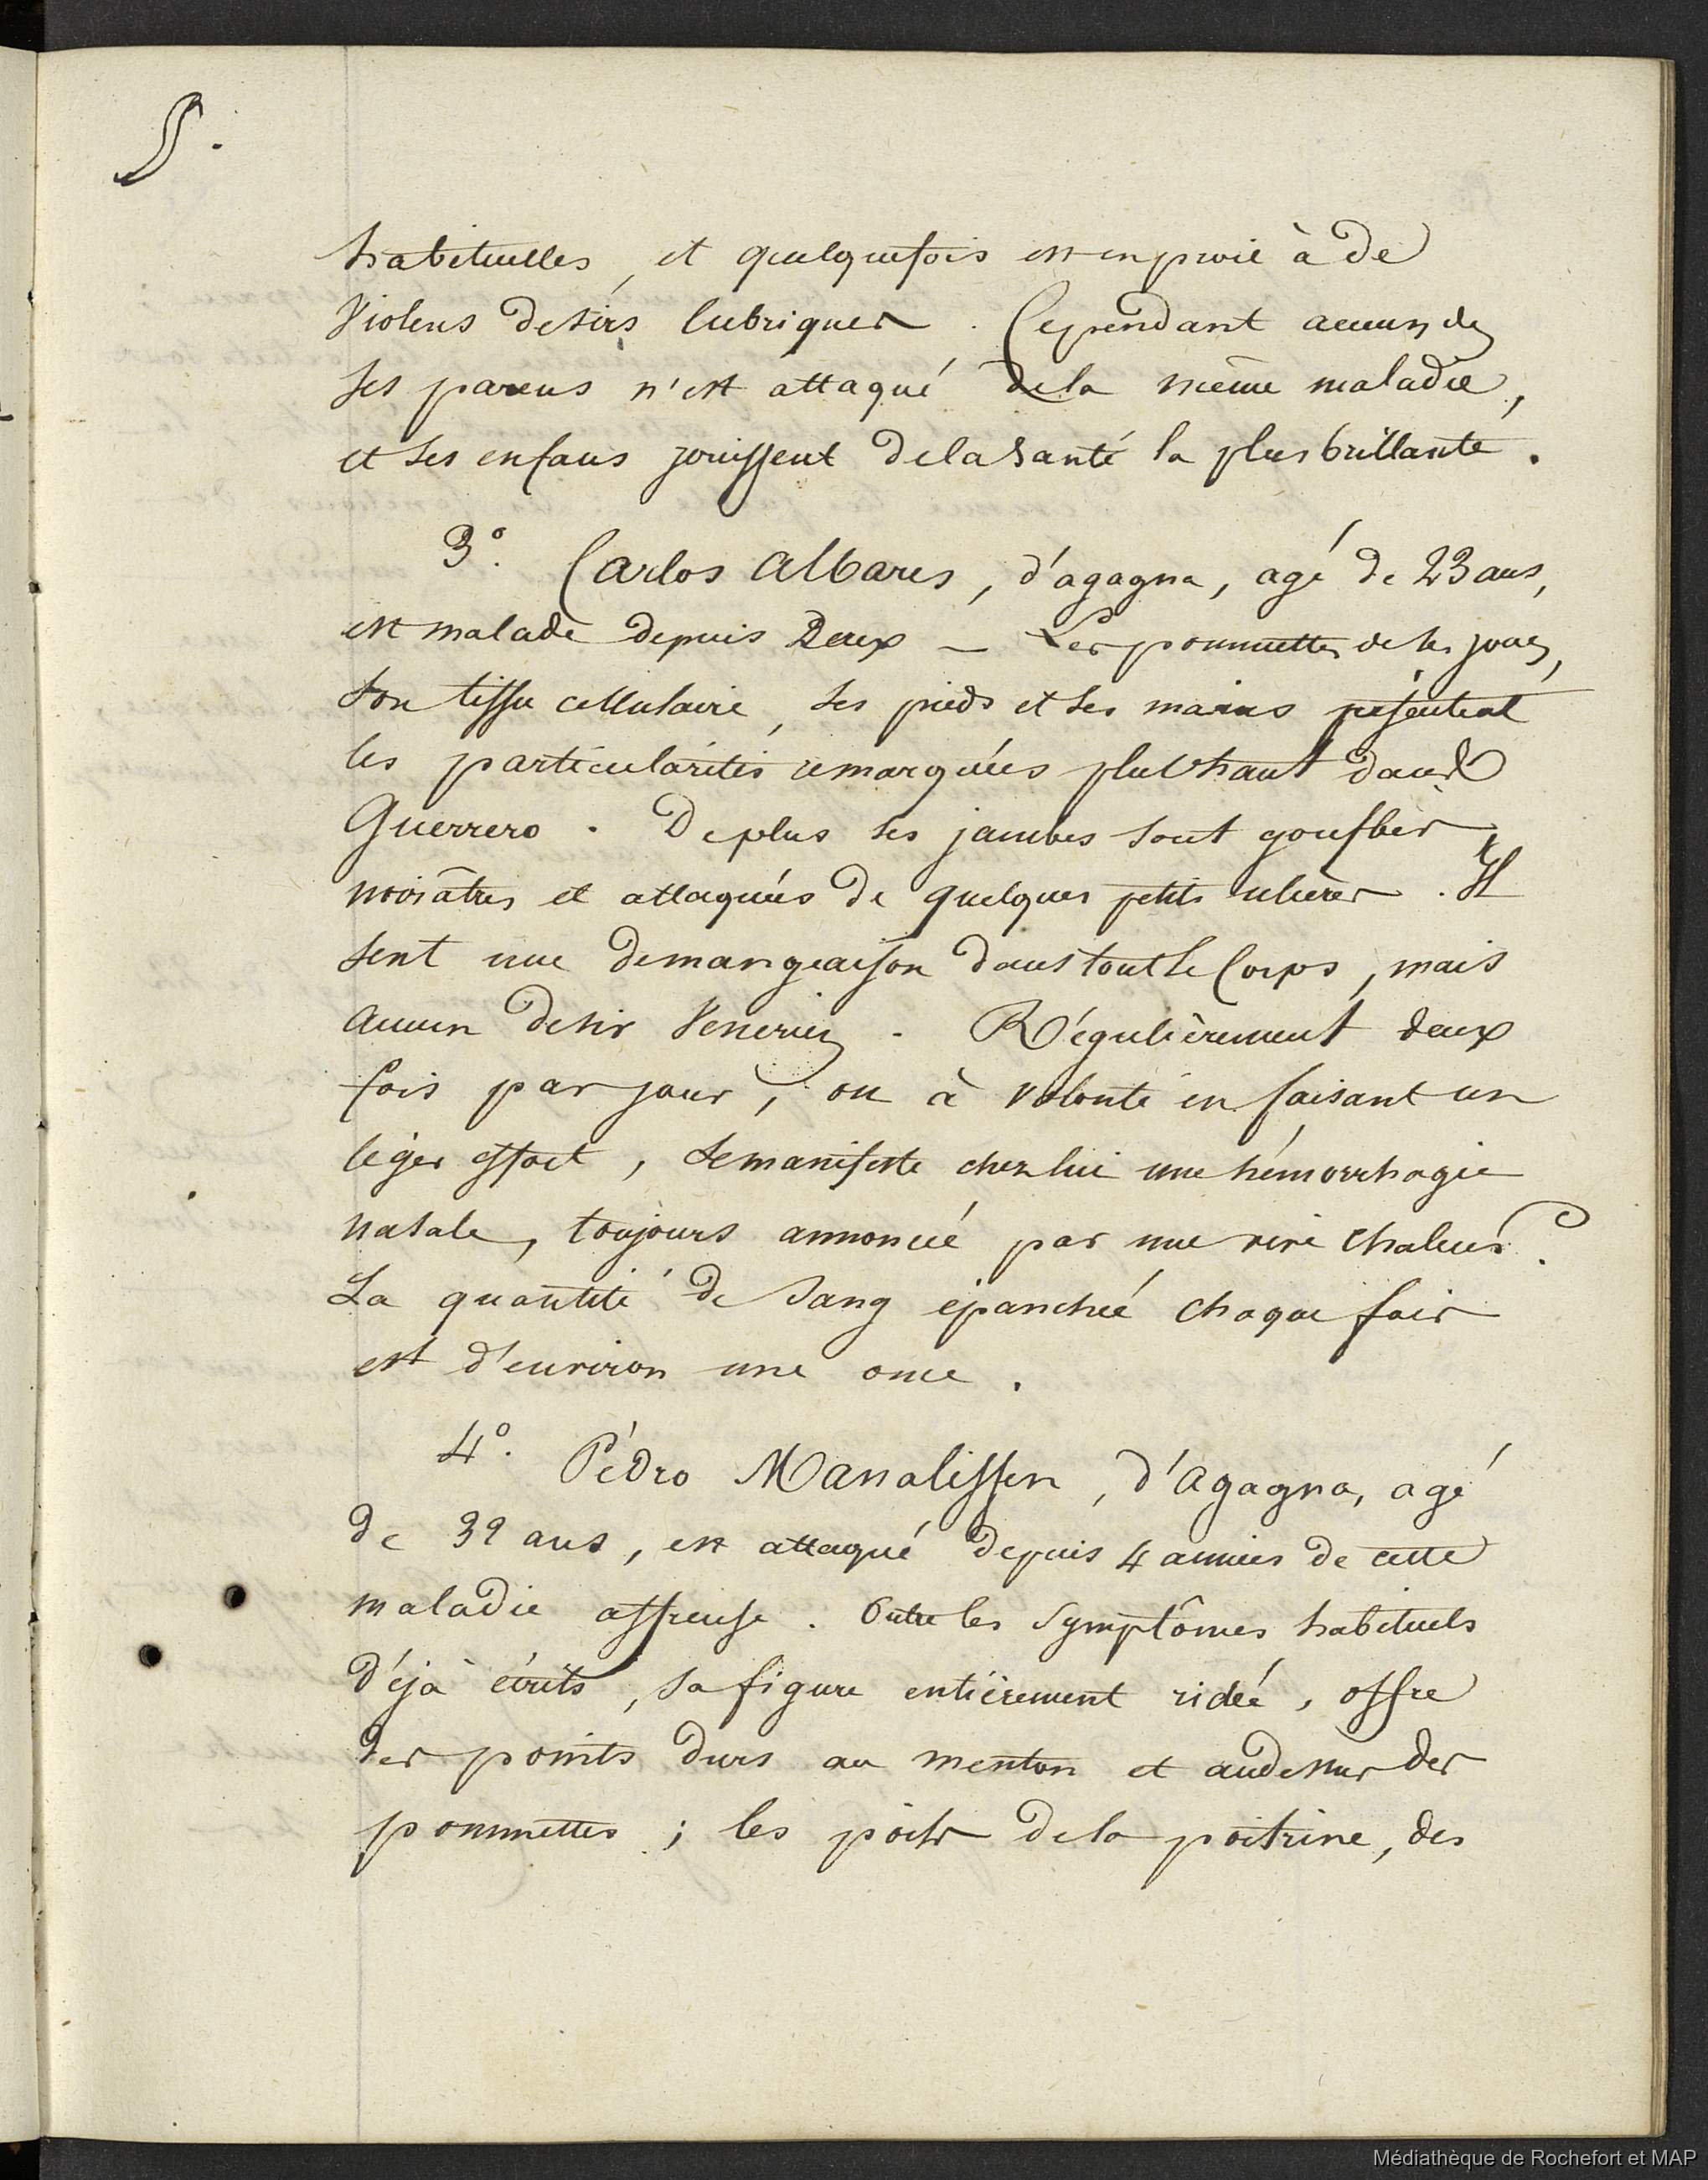 S.
habituelles, et quelquefois est en proie à de
violens desirs lubriques. Cependant aucun de
ses parens n'est attaqué de la même maladie,
et ses enfans jouissent de la santé la plus brillante.
3°. Carlos Albares, d'agagna, agé de 23 ans,
est malade depuis Deux – Les pommettes de ses joues,
son tissu cellulaire, ses pieds et ses mains présentent
les particularités remarquées plus haut dans
Guerrero. De plus ses jambes sont gonflées,
noirâtres et attaquées de quelques petits ulcères. Il
sent une demangeaison dans tout le Corps, mais
aucun desir Venerien. Régulièrement deux
fois par jour, ou à volonté en faisant un
léger effort, se manifeste chez lui une hémorrhagie
nasale, toujours annoncée par une vive chaleur.
La quantité de sang épanchée chaque fois
est d'environ une once.
4°. Pédro Manalissen, d'Agagna, agé
de 39 ans, est attaqué depuis 4 années de cette
maladie affreuse. Outre les Symptômes habituels
déjà écrits, sa figure entièrement ridée, offre
des points durs au menton et audessus des
pommettes; les poils de la poitrine, des
Médiathèque de Rochefort et MAP